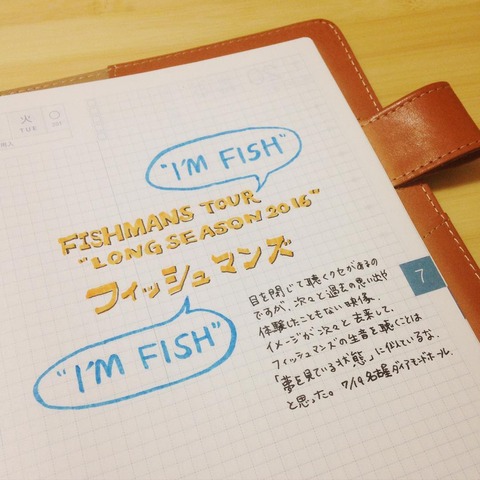 火
TUE
"I'M FISH"
FISHMANS TOUR
"LONG SEASON 2016"
フィッシュマンズ
"I'M FISH"
7
目を閉じて聴くクセがあるの
ですが、次々と過去の思い出や
体験したこともない映像、
イメージが次々と去来して、
フィッシュマンズの生音を聴くことは
「夢を見ている状態」に似ているな、
と思った。 7/19 名古屋ダイアモンドホール.